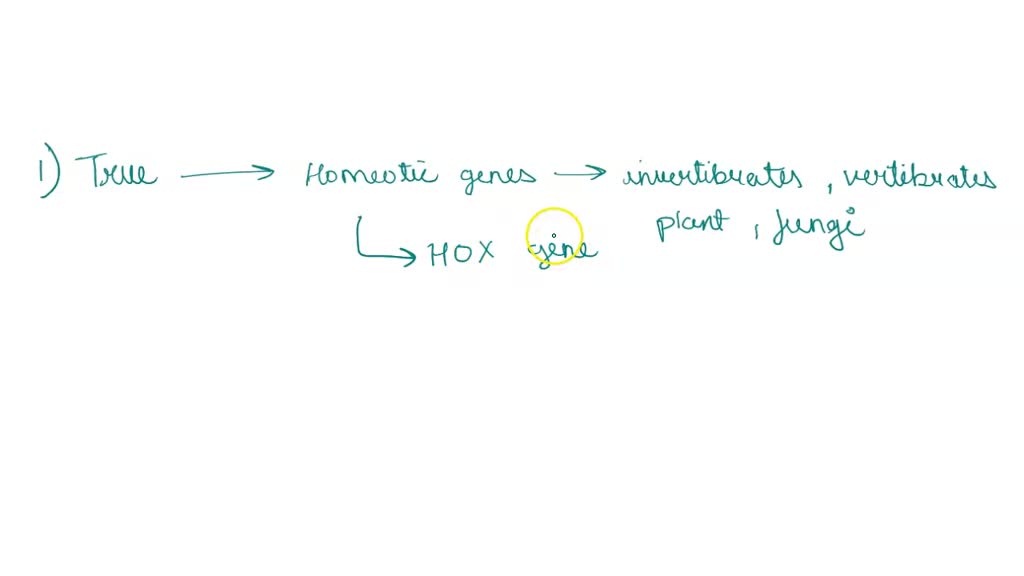 1) True → Homeotic genes → invertibrates, vertibrates
plant, fungi
↳ HOX gene